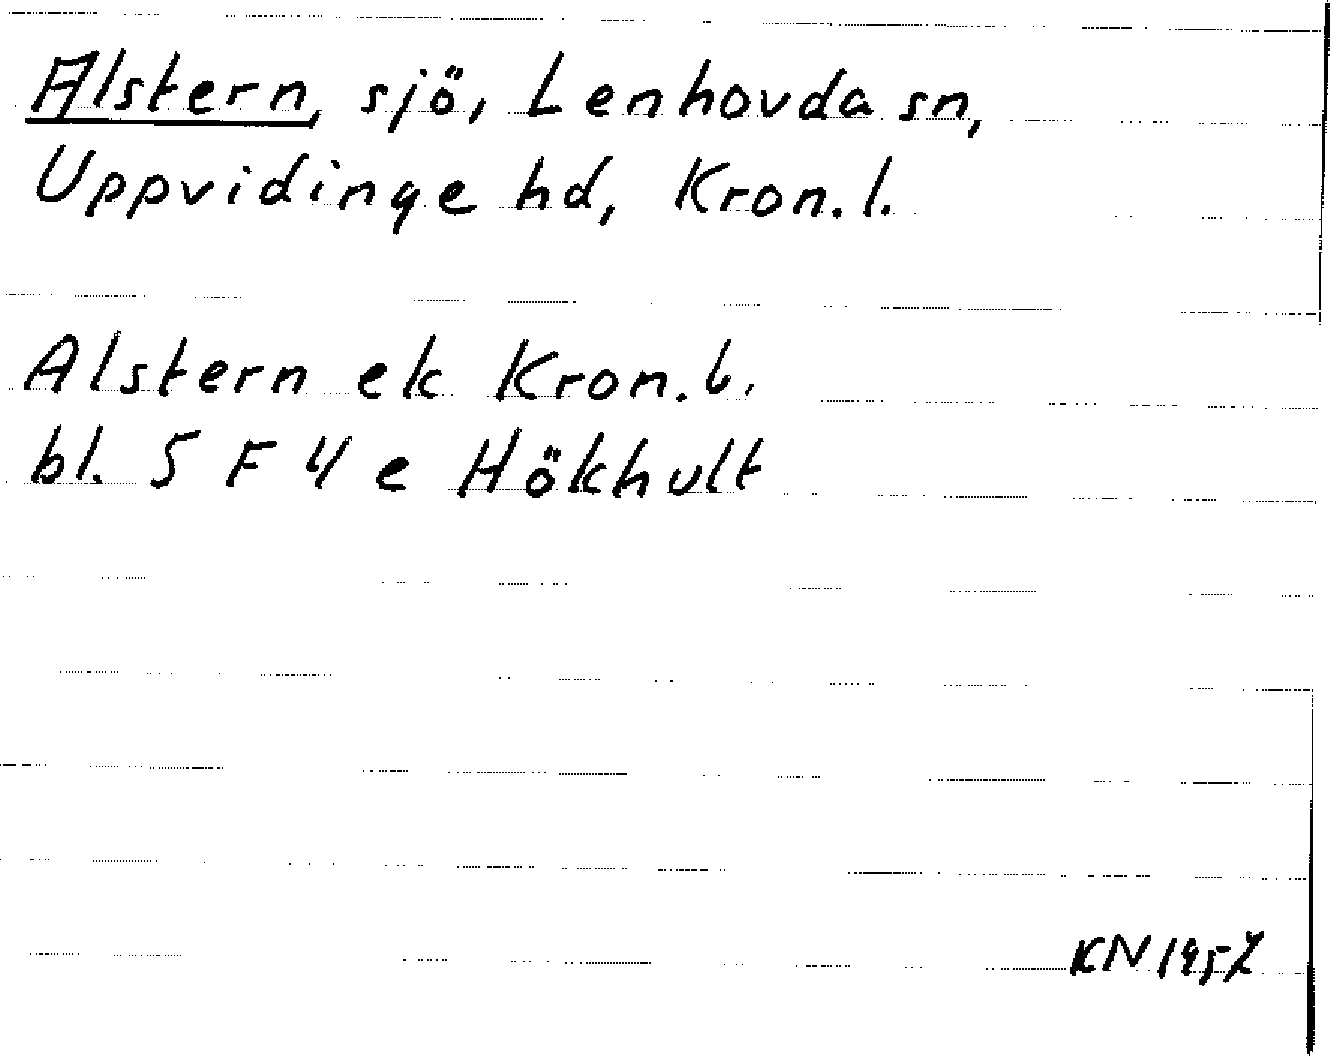 Alstern, sjö, Lenhovda sn,
Uppvidinge hd, Kron. l.
Alstern ek Kron. l.
bl. 5 F 4 e Hökhult
KN 1957